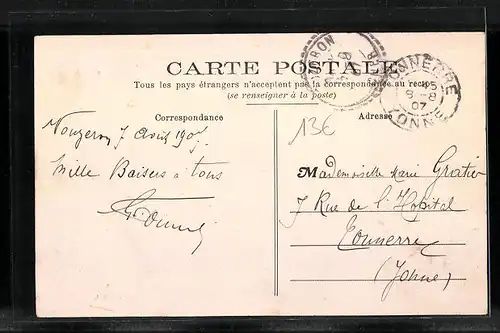 CARTE POSTALE
Tous les pays étrangers n'acceptent pas la correspondance au recto
(se renseigner à la poste)
Correspondance
Adresse
TONNERRE
8 - 8
07
YONNE
13€
Vouzeron 7 Août 1907
Mille Baisers à tous
Mademoiselle Marie Gratier
7 Rue de l'Hopital
Tonnerre
(Yonne)